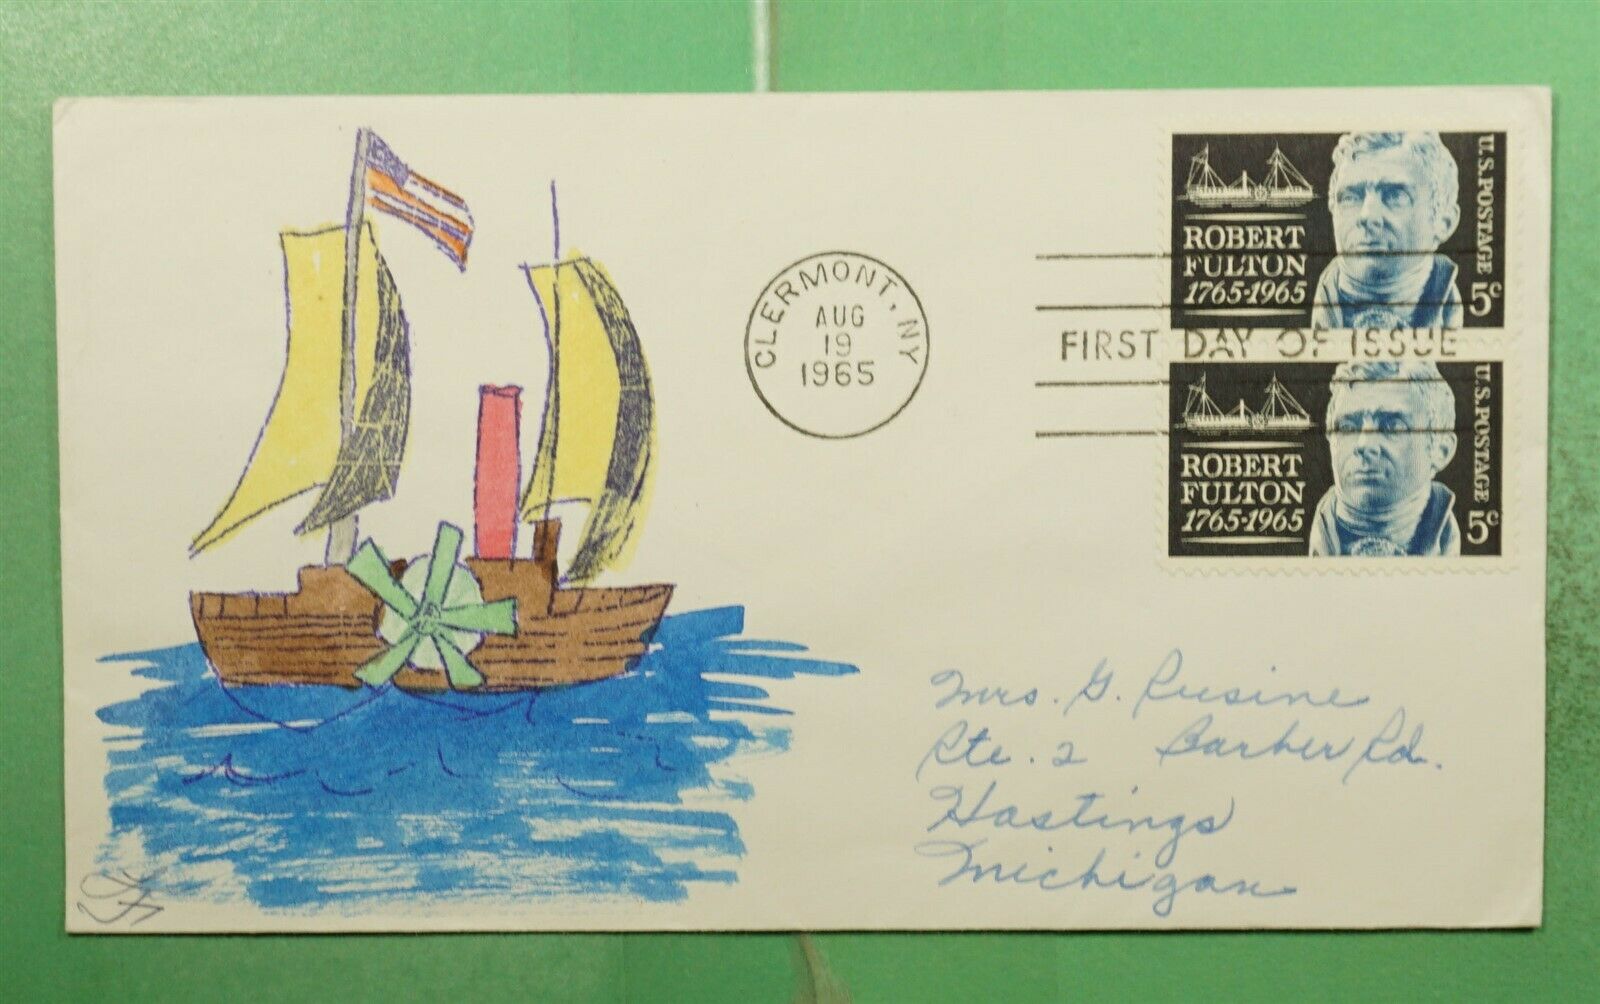 CLERMONT, NY
AUG
19
1965
FIRST DAY OF ISSUE
U.S. POSTAGE
ROBERT
FULTON
1765-1965
5c
U.S. POSTAGE
ROBERT
FULTON
1765-1965
5c
Mrs. G. Rusine
Rte. 2 Barber Rd.
Hastings
Michigan